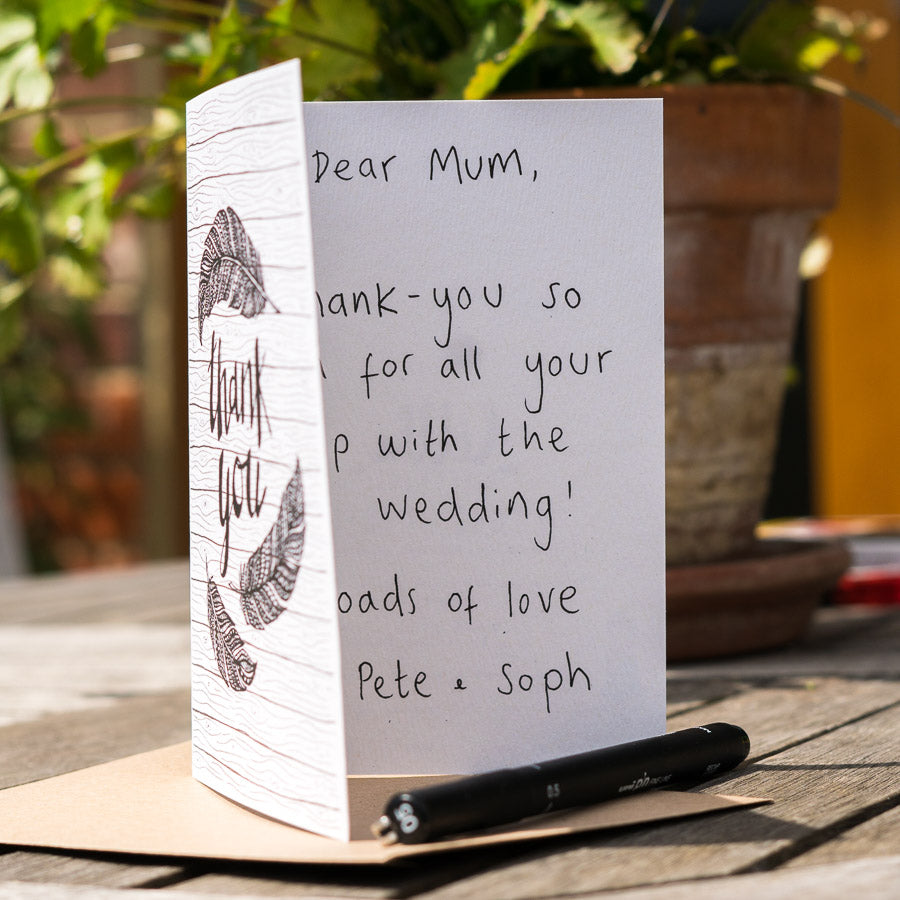 thank
you
Dear Mum,
hank-you so
for all your
p with the
wedding!
oads of love
Pete & Soph
0.5
uni pin
05